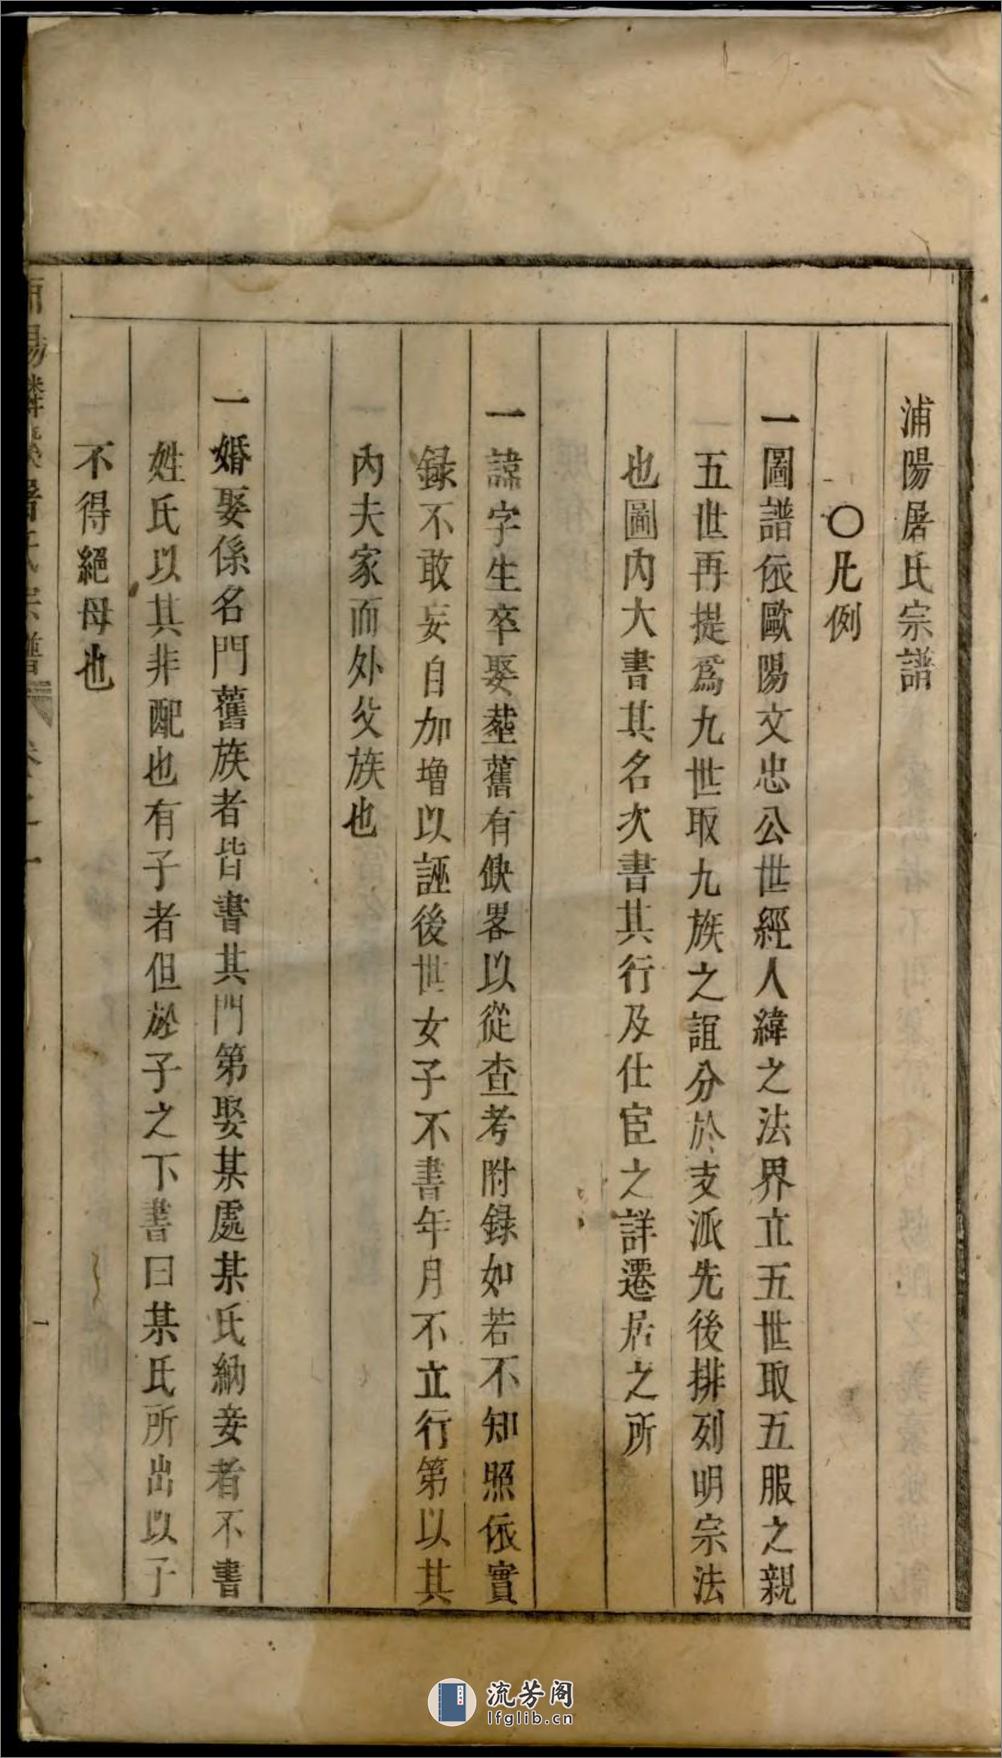 浦陽屠氏宗譜
〇凡例
一圖譜依歐陽文忠公世經人緯之法界立五世取五服之親
五世再提爲九世取九族之誼分於支派先後排列明宗法
也圖內大書其名次書其行及仕宦之詳遷居之所
一諱字生卒娶塟舊有缺畧以從查考附録如若不知照依實
録不敢妄自加增以誣後世女子不書年月不立行第以其
內夫家而外父族也
一婚娶係名門舊族者皆書其門第娶某處某氏納妾者不書
姓氏以其非配也有子者但於子之下書曰某氏所出以子
不得絕母也
屠氏宗譜
卷之一
一
流芳阁
lfglib.cn